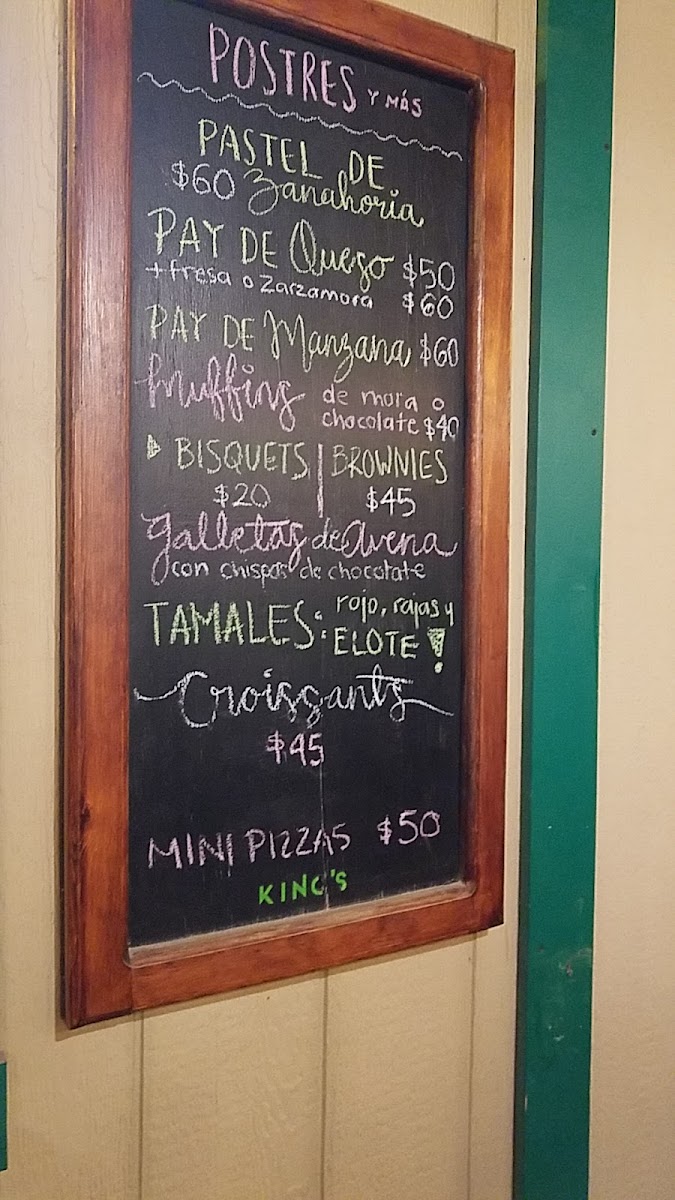 POSTRES Y MÁS
PASTEL DE
$60 Zanahoria
PAY DE Queso $50
+ fresa o Zarzamora $60
PAY DE Manzana $60
Muffins de mora o
chocolate $40
BISQUETS | BROWNIES
$20 $45
Galletas de Avena
con chispas de chocolate
TAMALES: rojo, rajas y
ELOTE!
Croissants
$45
MINI PIZZAS $50
KING'S